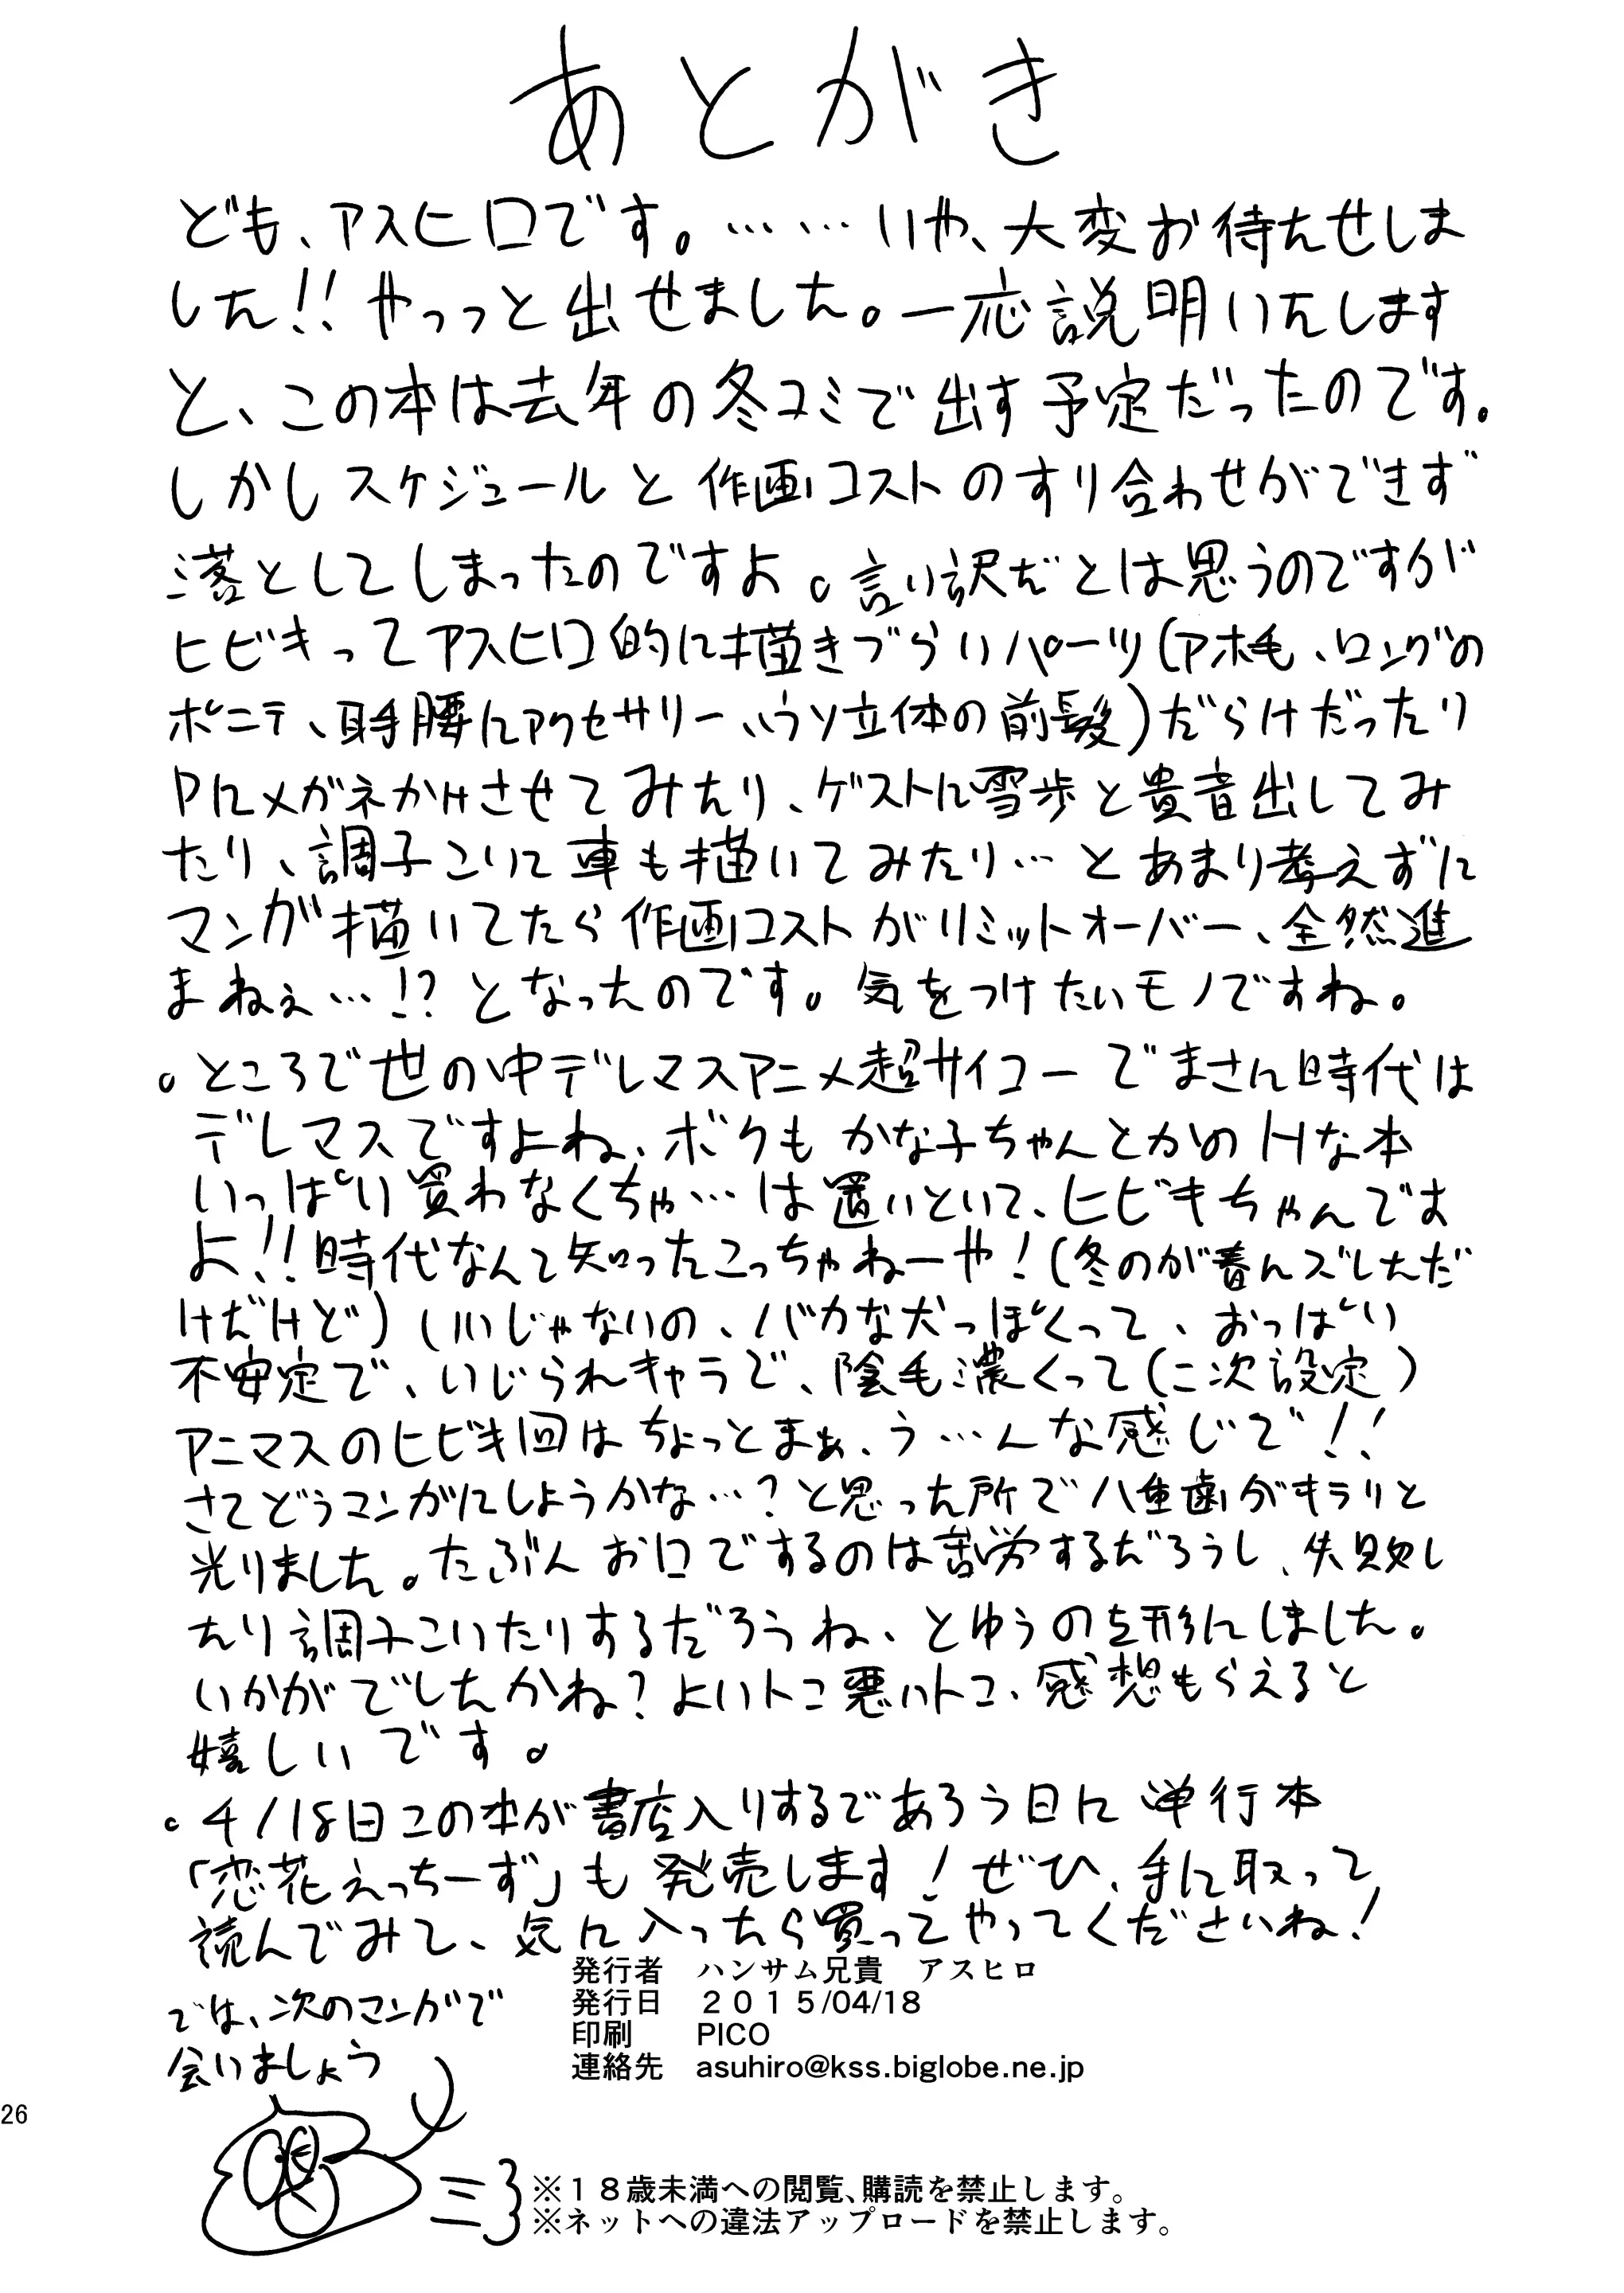 あとがき
ども、アスヒロです。……いや、大変お待たせしま
した!!やっっと出せました。一応説明いたします
と、この本は去年の冬コミで出す予定だったのです。
しかしスケジュールと作画コストのすり合わせができず
落としてしまったのですよ。言い訳だとは思うのですが
ヒビキってアスヒロ的に描きづらいパーツ(アホ毛、ロングの
ポニテ、耳手腰にアクセサリー、ウソ立体の前髪)だらけだったり
Pにメガネかけさせてみたり、ゲストに雪歩と貴音出してみ
たり、調子こいて車も描いてみたり…とあまり考えずに
マンガ描いてたら作画コストがリミットオーバー、全然進
まねぇ…!?となったのです。気をつけたいモノですね。
。ところで世の中デレマスアニメ超サイコーでまさに時代は
デレマスですよね、ボクもかな子ちゃんとかのHな本
いっぱい買わなくちゃ…は置いといて、ヒビキちゃんです
よ!!時代なんて知ったこっちゃねーや!(冬のが春にズレただ
けだけど)いいじゃないの、バカな犬っぽくって、おっぱい
不安定で、いじられキャラで、陰毛濃くって(二次設定)
アニマスのヒビキ回はちょっとまぁ、う…んな感じで!!
さてどうマンガにしようかな…?と思った所で八重歯がキラリと
光りました。たぶんお口でするのは苦労するだろうし、失敗し
たり調子こいたりするだろうね、とゆうのを形にしました。
いかがでしたかね?よいトコ悪いトコ、感想もらえると
嬉しいです。
。4/18日この本が書店入りするであろう日に単行本
「恋花えっちーず」も発売します!ぜひ、手に取って
読んでみて、気に入ったら買ってやってくださいね!
発行者　ハンサム兄貴　アスヒロ
発行日　２０１５/04/18
印刷　PICO
連絡先　asuhiro@kss.biglobe.ne.jp
では、次のマンガで
会いましょう
26
※１８歳未満への閲覧、購読を禁止します。
※ネットへの違法アップロードを禁止します。